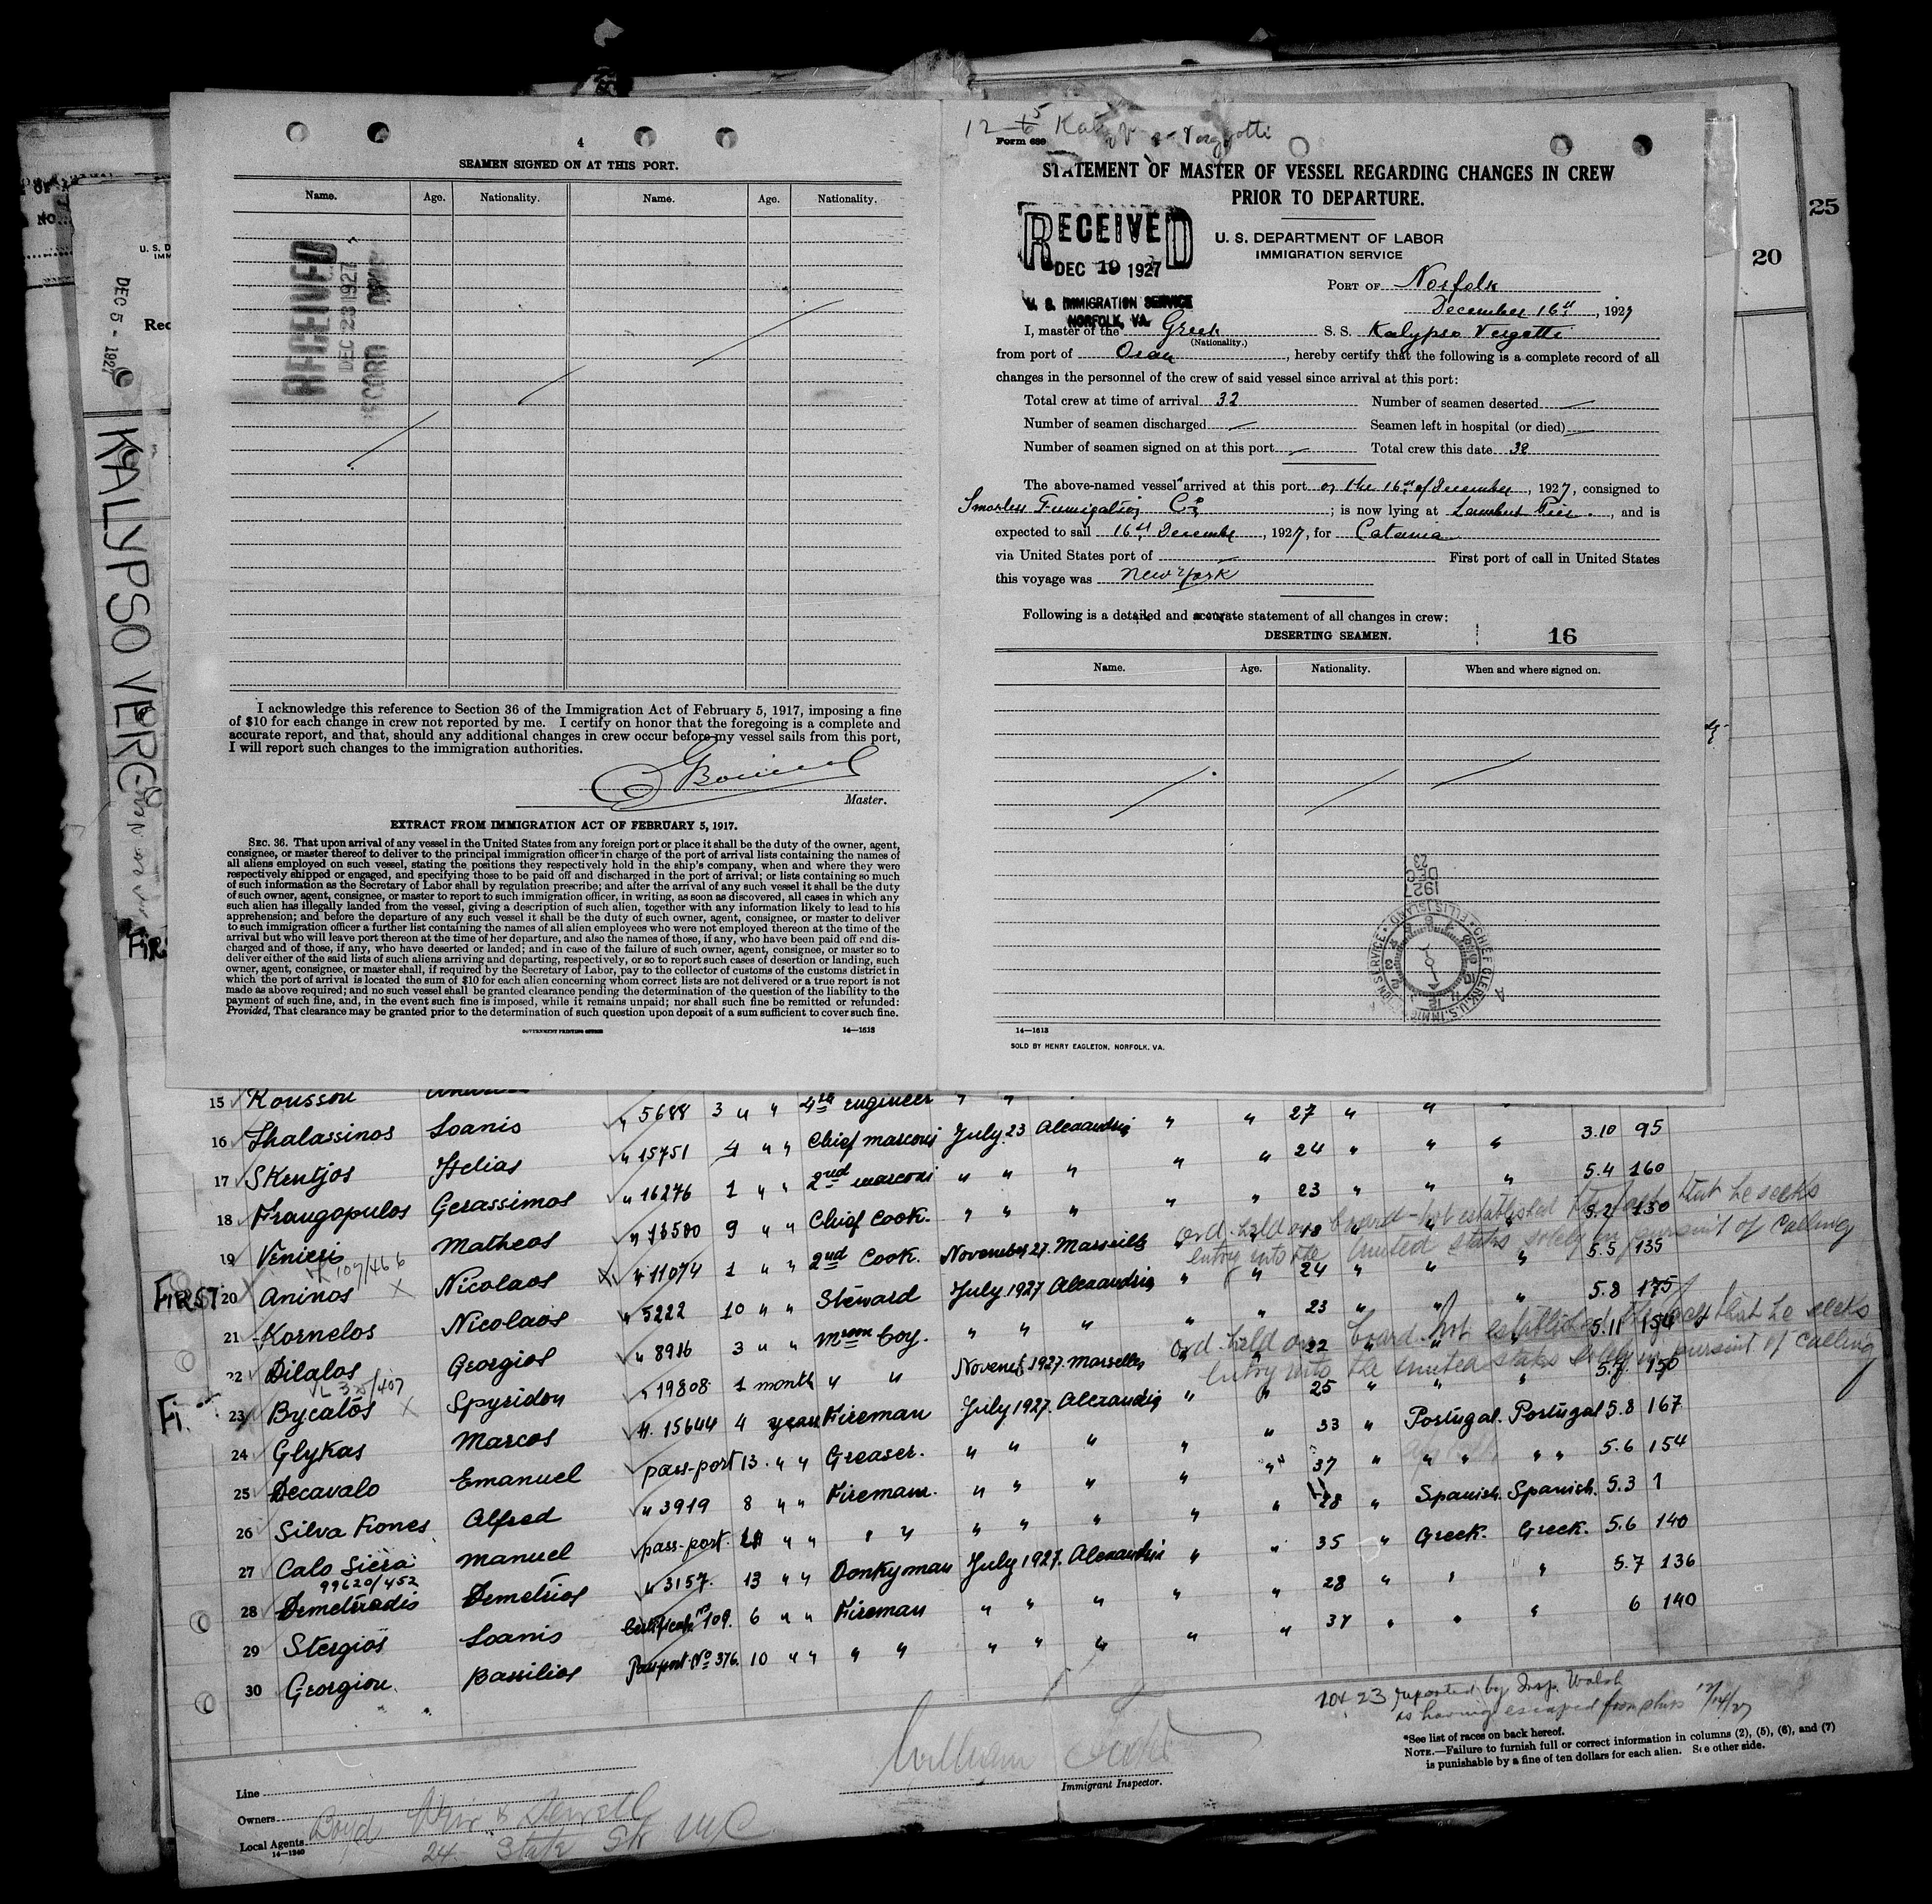 4
SEAMEN SIGNED ON AT THIS PORT.
Name. Age. Nationality. Name. Age. Nationality.
RECEIVED
DEC 23 1927
I acknowledge this reference to Section 36 of the Immigration Act of February 5, 1917, imposing a fine
of $10 for each change in crew not reported by me. I certify on honor that the foregoing is a complete and
accurate report, and that, should any additional changes in crew occur before my vessel sails from this port,
I will report such changes to the immigration authorities.
Master.
EXTRACT FROM IMMIGRATION ACT OF FEBRUARY 5, 1917.
SEC. 36. That upon arrival of any vessel in the United States from any foreign port or place it shall be the duty of the owner, agent,
consignee, or master thereof to deliver to the principal immigration officer in charge of the port of arrival lists containing the names of
all aliens employed on such vessel, stating the positions they respectively hold in the ship's company, when and where they were
respectively shipped or engaged, and specifying those to be paid off and discharged in the port of arrival; or lists containing so much
of such information as the Secretary of Labor shall by regulation prescribe; and after the arrival of any such vessel it shall be the duty
of such owner, agent, consignee, or master to report to such immigration officer, in writing, as soon as discovered, all cases in which any
such alien has illegally landed from the vessel, giving a description of such alien, together with any information likely to lead to his
apprehension; and before the departure of any such vessel it shall be the duty of such owner, agent, consignee, or master to deliver
to such immigration officer a further list containing the names of all alien employees who were not employed thereon at the time of the
arrival but who will leave port thereon at the time of her departure, and also the names of those, if any, who have been paid off and dis-
charged and of those, if any, who have deserted or landed; and in case of the failure of such owner, agent, consignee, or master so to
deliver either of the said lists of such aliens arriving and departing, respectively, or so to report such cases of desertion or landing, such
owner, agent, consignee, or master shall, if required by the Secretary of Labor, pay to the collector of customs of the customs district in
which the port of arrival is located the sum of $10 for each alien concerning whom correct lists are not delivered or a true report is not
made as above required; and no such vessel shall be granted clearance pending the determination of the question of the liability to the
payment of such fine, and, in the event such fine is imposed, while it remains unpaid; nor shall such fine be remitted or refunded:
Provided, That clearance may be granted prior to the determination of such question upon deposit of a sum sufficient to cover such fine.
GOVERNMENT PRINTING OFFICE 14—1613
Form 689
STATEMENT OF MASTER OF VESSEL REGARDING CHANGES IN CREW
PRIOR TO DEPARTURE.
RECEIVED
DEC 19 1927
U. S. IMMIGRATION SERVICE
NORFOLK, VA.
U. S. DEPARTMENT OF LABOR
IMMIGRATION SERVICE
PORT OF Norfolk
December 16th, 1927
I, master of the Greek S. S. Kalypso Vergotti
(Nationality.)
from port of Oran, hereby certify that the following is a complete record of all
changes in the personnel of the crew of said vessel since arrival at this port:
Total crew at time of arrival 32 Number of seamen deserted —
Number of seamen discharged — Seamen left in hospital (or died) —
Number of seamen signed on at this port — Total crew this date 32
The above-named vessel arrived at this port on the 16th of December, 1927, consigned to
Smokeless Fumigation Co; is now lying at Lambert Pier., and is
expected to sail 16th December, 1927, for Catania
via United States port of — First port of call in United States
this voyage was New York
Following is a detailed and accurate statement of all changes in crew:
DESERTING SEAMEN. 16
Name. Age. Nationality. When and where signed on.
1927
DEC
23
CHIEF CLERK U.S. IMMIGRATION SERVICE ELLIS ISLAND
14—1613
SOLD BY HENRY EAGLETON, NORFOLK, VA.
25
20
DEC 5 - 1927
KALYPSO VERG
15 Kousson " 5688 3 " " 4th Engineer " " 27 " "
16 Thalassinos Loanis " 15751 4 " " Chief marconi July 23 Alexandria " " 24 " " " 3.10 95
17 Skentjos Helias " 16276 1 " " 2nd marconi " " " " " 23 " " " 5.4 160
18 Fraugopulos Gerassimos " 13580 9 " " Chief Cook. " " " " " 48 " " " 5.2 130
ord. held on board - not established the fact that he seeks
entry into the United States solely in pursuit of calling
19 Venieri Matheos " 11074 1 " " 2nd Cook. November 27. Marseille " " 24 " " " 5.5 135
107/466
FIRST 20 Aninos Nicolaos " 5222 10 " " Steward July 1927 Alexandria " " 23 " " " 5.8 175
21 Kornelos Nicolaos " 8916 3 " " Mroom boy. " " " " " 22 " " " 5.11 154
ord. held on board. Not established the fact that he seeks
entry into the United States solely in pursuit of calling
22 Dilalos Georgios " 19808 1 month " " Novemb 1927. Marselles " " 25 " " " 5.7 150
23 Bycalos Spyridon 15644 4 years Fireman July 1927. Alexandria " " 33 " Portugal. Portugal 5.8 167
24 Glykas Marcos pass-port 13 " " Greaser. " " " " " 37 " " " " " 5.6 154
25 Decavalo Emanuel " 3919 8 " " Fireman. " " " " " 28 " Spanish. Spanish. 5.3 1
26 Silva Fiones Alfred pass-port. " " " " " " " " " 35 " Greek. Greek. 5.6 140
27 Calo Siera Manuel " 3157. 13 " " Donkyman July 1927. Alexandria " " 28 " " " 5.7 136
99620/452
28 Demetriadis Demetrios Certificate No 109. 6 " " Fireman " " " " " 37 " " " 6 140
29 Stergios Loanis Passport No 376. 10 " " " " " " " " "
30 Georgiou Bassilios
20 & 23 reported by Insp. Walsh
as having escaped from ship 12/14/27
*See list of races on back hereof.
NOTE.—Failure to furnish full or correct information in columns (2), (5), (6), and (7)
is punishable by a fine of ten dollars for each alien. See other side.
Immigrant Inspector.
Line
Owners
Local Agents Boyd Weir & Sewell
24 State St NYC
14—1240